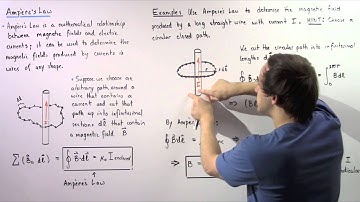 Ampère's Law
• Ampère's Law is a mathematical relationship
between magnetic fields and electric
currents; it can be used to determine the
magnetic fields produced by currents in
wires of any shape.
• Suppose we choose an
arbitrary path around a
wire that contains a
current and cut that
path up into infinitesimal
sections dℓ that contain
a magnetic field B
Σ(B∥ dℓ) = ∮ B·dℓ = μ₀ I enclosed
Ampère's Law
Example: Use Ampère's Law to determine the magnetic field
produced by a long straight wire with current I. HINT: Choose a
circular closed path.
We cut the circular path into infinitesimal
lengths dℓ
By Ampère
∮ B·dℓ =
⇒ B =